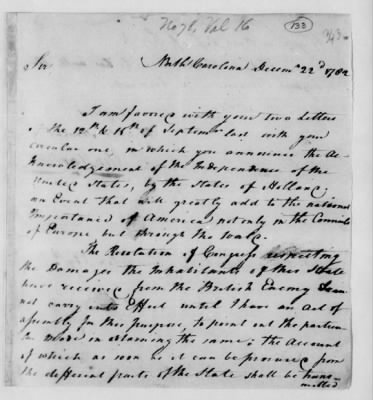 No 76, Vol 16
133
Sir
North Carolina Decemr. 22d. 1782
I am favored with your two Letters
of the 12th. & 16th. of Septemr. last with your
circular one, in which you announce the Ac-
knowledgement of the Independence of the
United States, by the States of Holland
an Event that will greatly add to the national
Importance of America not only in the Councils
of Europe but through the World.
The Resolution of Congress respecting
the Damages the Inhabitants of this State
have received from the British Enemy I can
not carry into Effect until I have an Act of
assembly for this purpose, to point out the particu-
lar mode in obtaining the same; the Account
of which as soon as it can be procured from
the different parts of the State shall be trans-
mitted